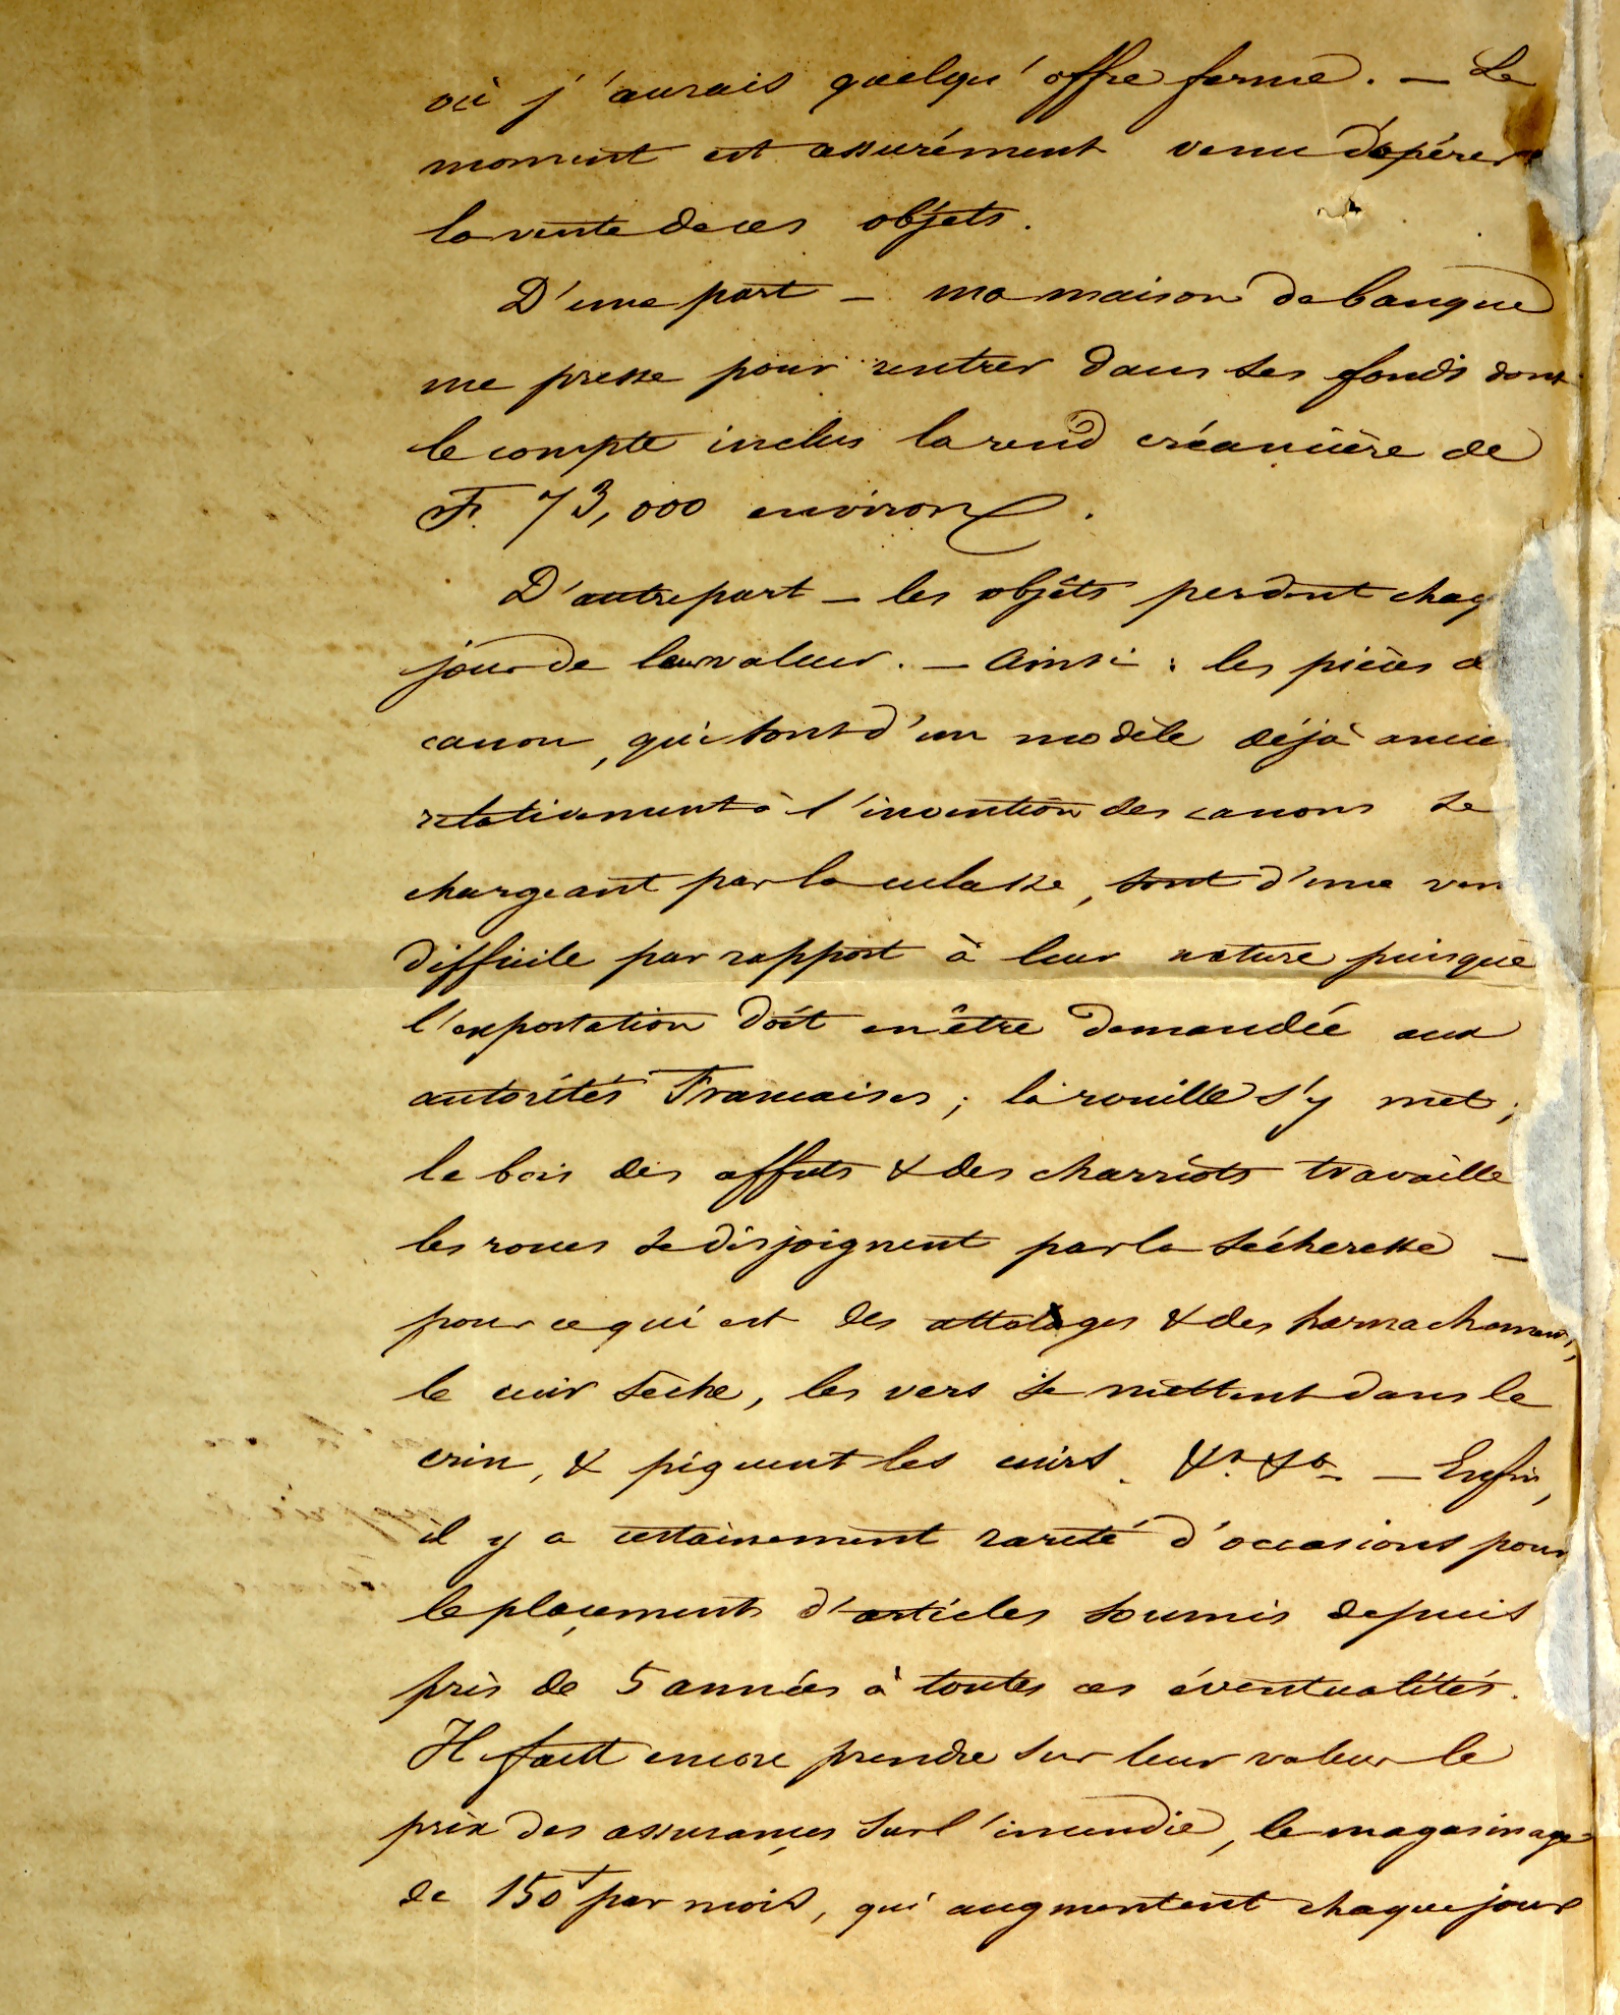 où j'aurais quelqu'offre ferme. — Le
moment est assurément venu d'opérer
la vente de ces objets.
D'une part — ma maison de banque
me presse pour rentrer dans ses fonds dont
le compte inclus la rend créancière de
F. 73,000 environ.
D'autre part — les objêts perdent chaq
jour de leur valeur. — Ainsi : les pièces d
canon, qui sont d'un modèle déjà ancie
relativement à l'invention des canons se
chargeant par la culasse, sont d'une ven
difficile par rapport à leur nature puisque
l'exportation doit en être demandée aux
autorités Francaises ; la rouille s'y met ;
le bois des affuts & des charriots travaille
les roues se disjoignent par la sécheresse —
pour ce qui est des attelages & des harnachements,
le cuir sèche, les vers se mettent dans le
crin, & piquent les cuirs. &a &a — Enfin,
il y a certainement rareté d'occasions pour
le plaçement d'articles soumis depuis
près de 5 années à toutes ces éventualités.
Il faut encore prendre sur leur valeur le
prix des assurances sur l'incendie, le magasinage
de 150f par mois, qui augmentent chaque jour